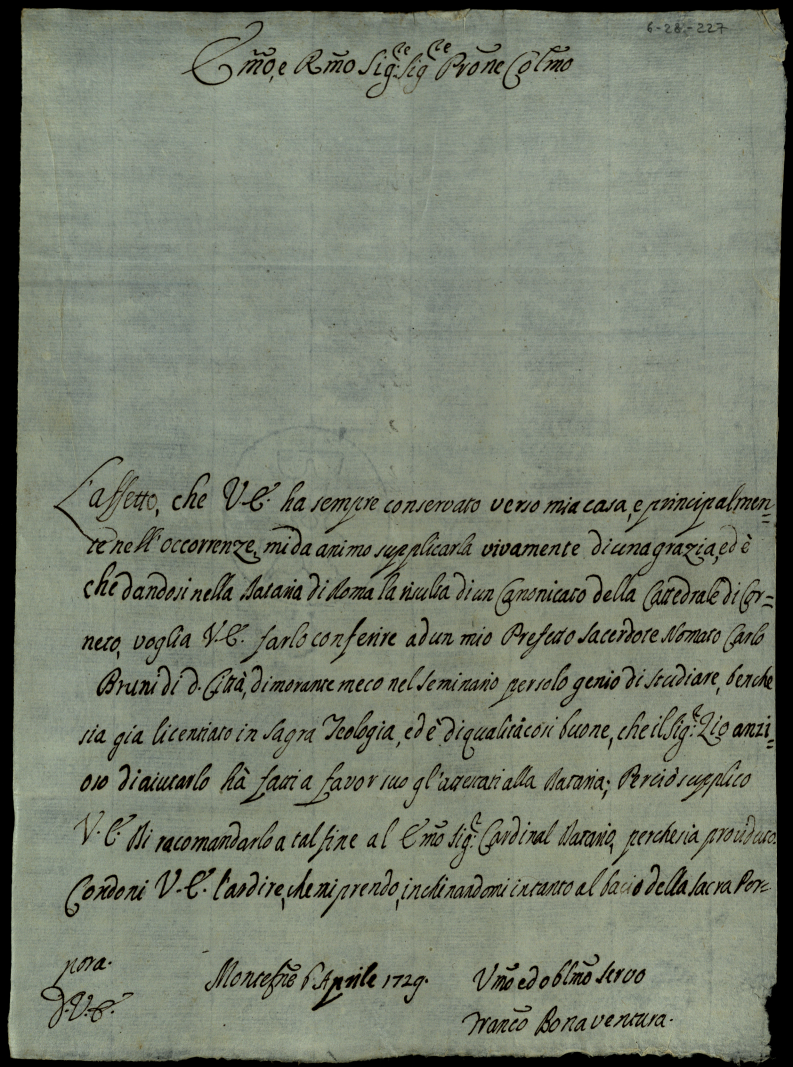 6-28.-227
Emo, e Rmo Sigre Sigre Prone Colmo
L'affetto, che V.E. ha sempre conservato verso mia casa, e principalmen=
te nell'occorrenze, mi da animo supplicarla vivamente di una grazia, ed è
che dandosi nella Dataria di Roma la risulta di un Canonicato della Cattedrale di Cor=
neto, voglia V.E. farlo conferire ad un mio Prefetto Sacerdote Nomato Carlo
Bruni di d. Città, dimorante meco nel Seminario per solo genio di studiare, benche
sia gia licentiato in Sagra Teologia, ed è di qualità così buone, che il Sigr Zio anzi=
oso di aiutarlo hà fatti a favor suo gl'attestati alla Dataria; Perciò supplico
V.E. Di racomandarlo a tal fine al Emo Sigr Cardinal Datario, perche sia proveduto.
Condoni V.E. l'ardire, che mi prendo, inchinandomi intanto al bacio della Sacra Por=
pora.
Montefne 6 Aprile 1729.
D.V.E.
Umo ed oblmo servo
Franco Bonaventura.